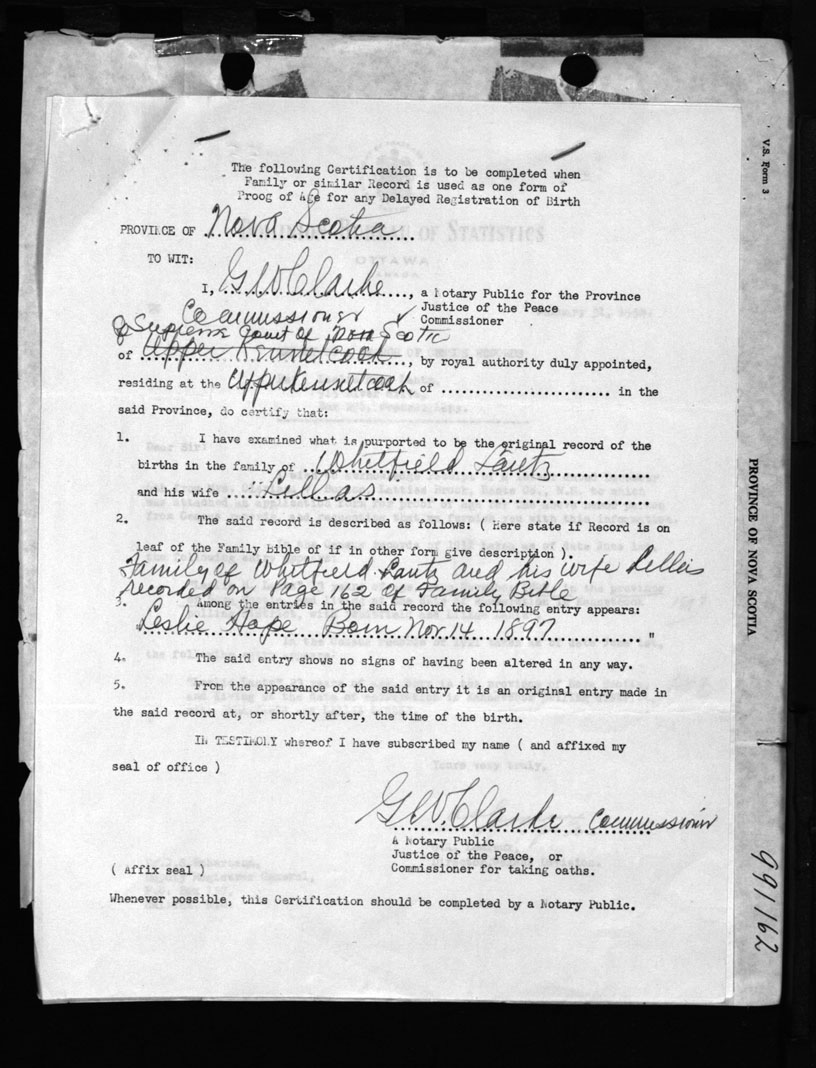 The following Certification is to be completed when
Family or similar Record is used as one form of
Proog of Age for any Delayed Registration of Birth
PROVINCE OF Nova Scotia
OF STATISTICS
OTTAWA
TO WIT:
I, G W Clarke, a Notary Public for the Province
Commissioner ✓ Justice of the Peace
Commissioner
of Supreme Court of Nova Scotia
of Upper Kennetcook, by royal authority duly appointed,
residing at the Upper Kennetcook of ........................ in the
said Province, do certify that:
1. I have examined what is purported to be the original record of the
births in the family of Whitfield Lantz
and his wife Lellias
2. The said record is described as follows: ( Here state if Record is on
leaf of the Family Bible of if in other form give description ).
Family of Whitfield Lantz and his wife Lellias
recorded on Page 162 of Family Bible
3. Among the entries in the said record the following entry appears:
"Leslie Hope Born Nov. 14 1897 "
4. The said entry shows no signs of having been altered in any way.
5. From the appearance of the said entry it is an original entry made in
the said record at, or shortly after, the time of the birth.
IN TESTIMONY whereof I have subscribed my name ( and affixed my
seal of office )
G W Clarke Commissioner
A Notary Public
Justice of the Peace, or
Commissioner for taking oaths.
( Affix seal )
Whenever possible, this Certification should be completed by a Notary Public.
V.S. Form 3
PROVINCE OF NOVA SCOTIA
991162